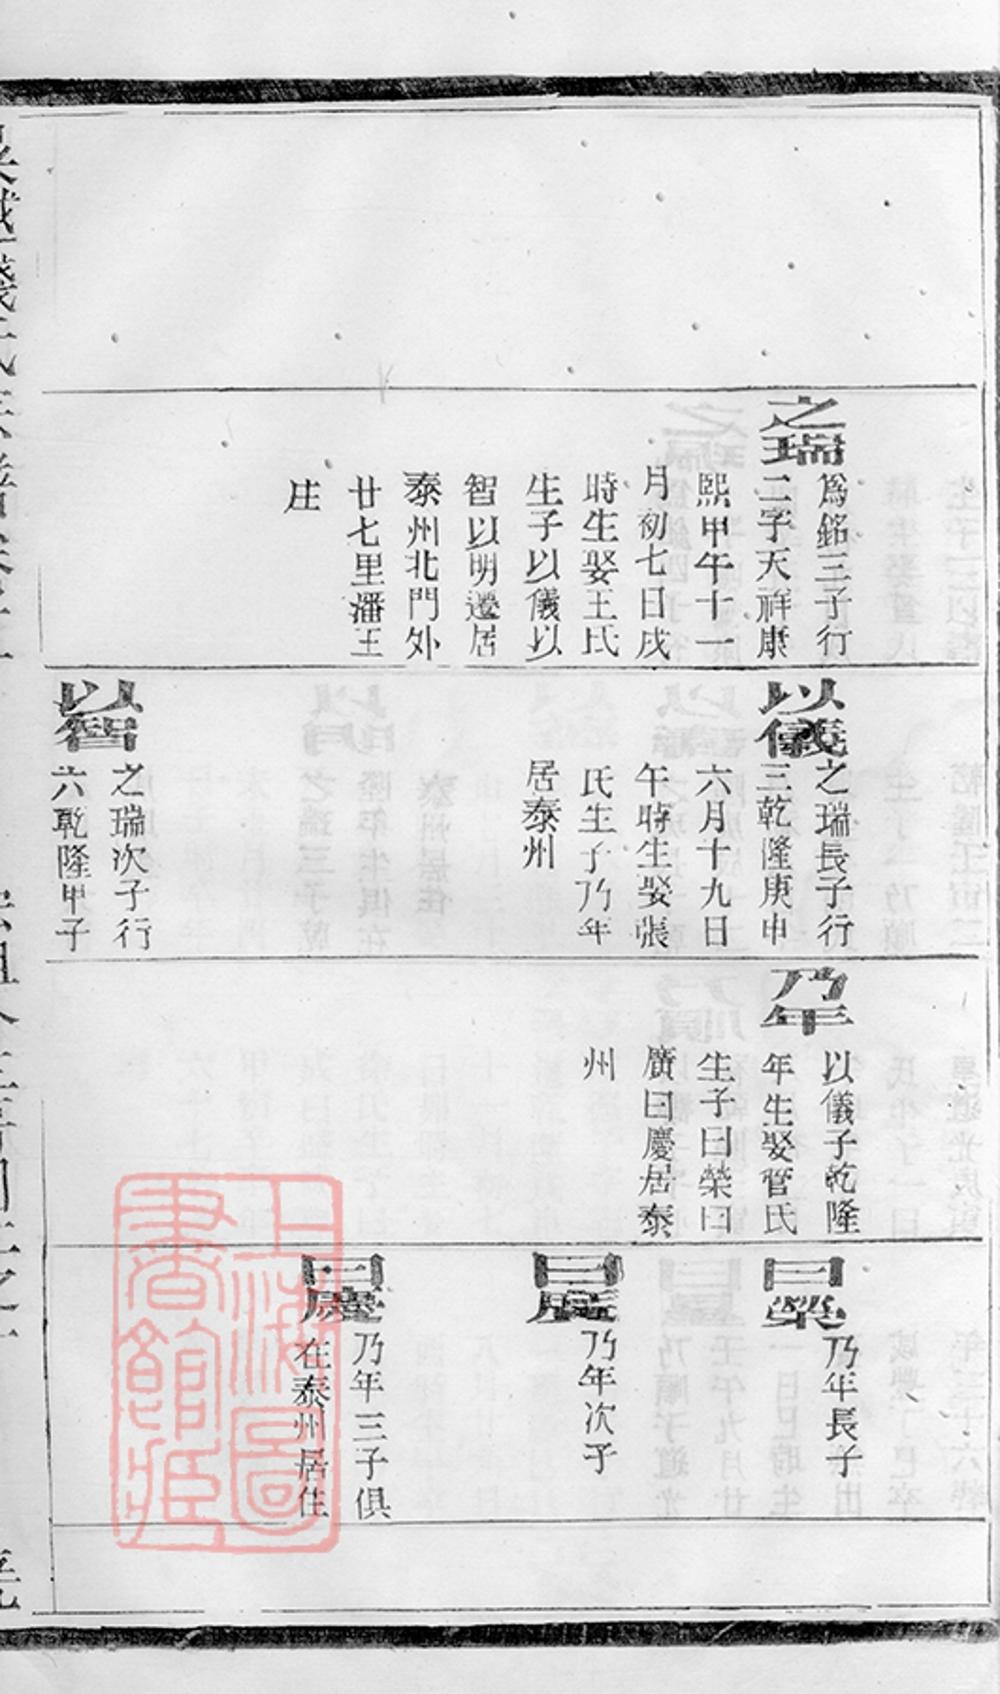 之瑞
爲銘三子行
二字天祥康
熙甲午十一
月初七日戌
時生娶王氏
生子以儀以
智以明遷居
泰州北門外
廿七里潘王
庄
以儀
之瑞長子行
三乾隆庚申
六月十九日
午時生娶張
氏生子乃年
居泰州
以智
之瑞次子行
六乾隆甲子
乃年
以儀子乾隆
年生娶管氏
生子曰榮曰
廣曰慶居泰
州
曰榮
乃年長子
曰廣
乃年次子
曰慶
乃年三子俱
在泰州居住
上海圖
書館藏